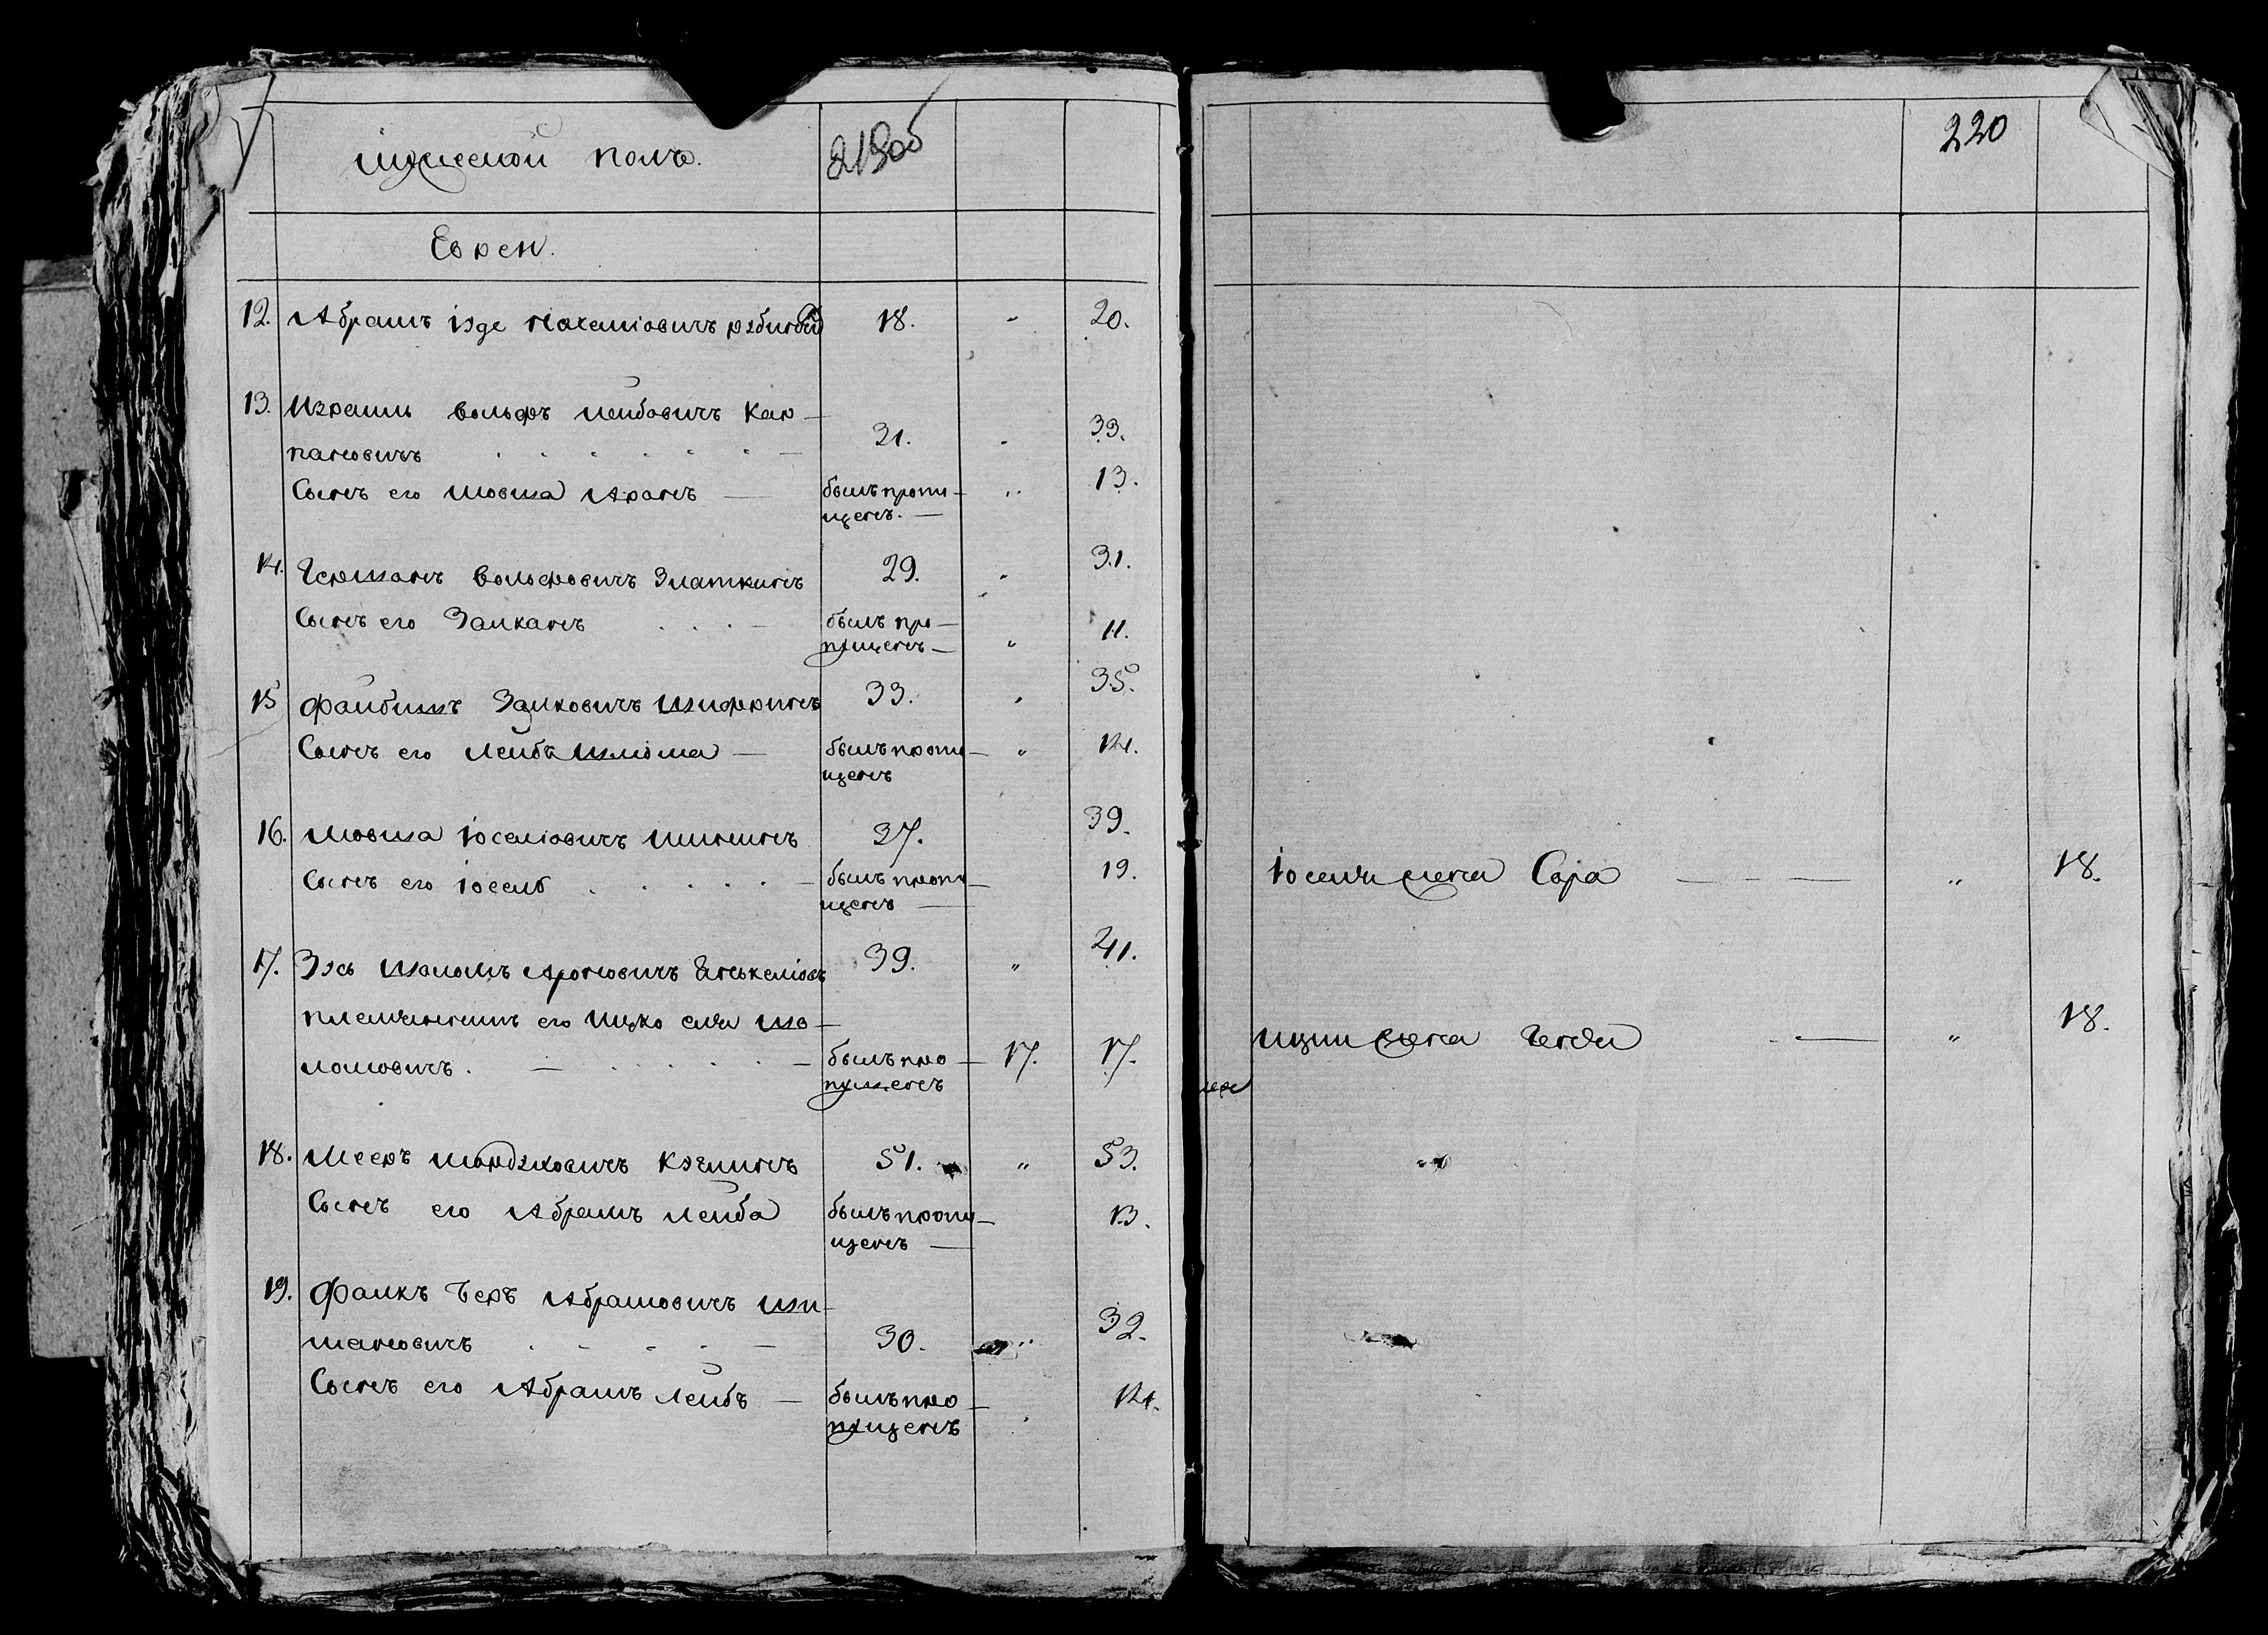 мужеской полъ. 219об
Евреи.
12. Абрамъ Iзде Нохемiовичъ 18. „ 20.
13. Израиль Вольфъ Лейбовичъ Кар-
пановичъ 31. „ 33.
Сынъ его Мовша Аронъ — былъ пропу- „ 13.
щенъ. —
14. Германъ Вольфовичъ Златкинъ 29. „ 31.
Сынъ его Залканъ былъ про- „ 11.
пущенъ —
15 Файбишъ Залковичъ Шифринъ 33. „ 35.
Сынъ его Лейбъ Шлiома — былъ пропу- „ 14.
щенъ
16. Мовша Iоселiовичъ 37. 39.
Сынъ его Iосель былъ пропу- 19.
щенъ —
17. Зусь Шаломъ Ароновичъ 39. „ 41.
племянникъ его Ицко Ели Шо-
ломовичъ. былъ про- 17. 17.
пущенъ
18. Мееръ Мордуховичъ 51. „ 53.
Сынъ его Абрамъ Лейба былъ пропу- 13.
щенъ —
19. Фалкъ Беръ Абрамовичъ Ши-
мановичъ 30. „ 32.
Сынъ его Абрамъ Лейбъ — былъ про- „ 14.
пущенъ
220
Iоселя жена Сора „ 18.
Ицки жена Генди „ 18.